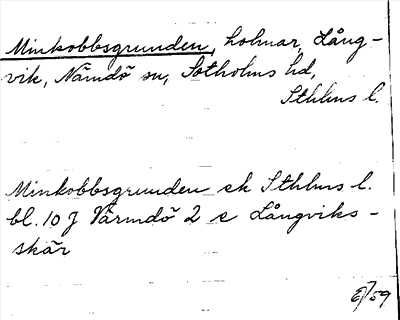 Minkobbsgrunden, holmar, Lång-
vik, Nämdö sn, Sotholms hd,
Sthlms l.
Minkobbsgrunden ek Sthlms l.
bl. 10 J Värmdö 2 e Långviks-
skär
E/59